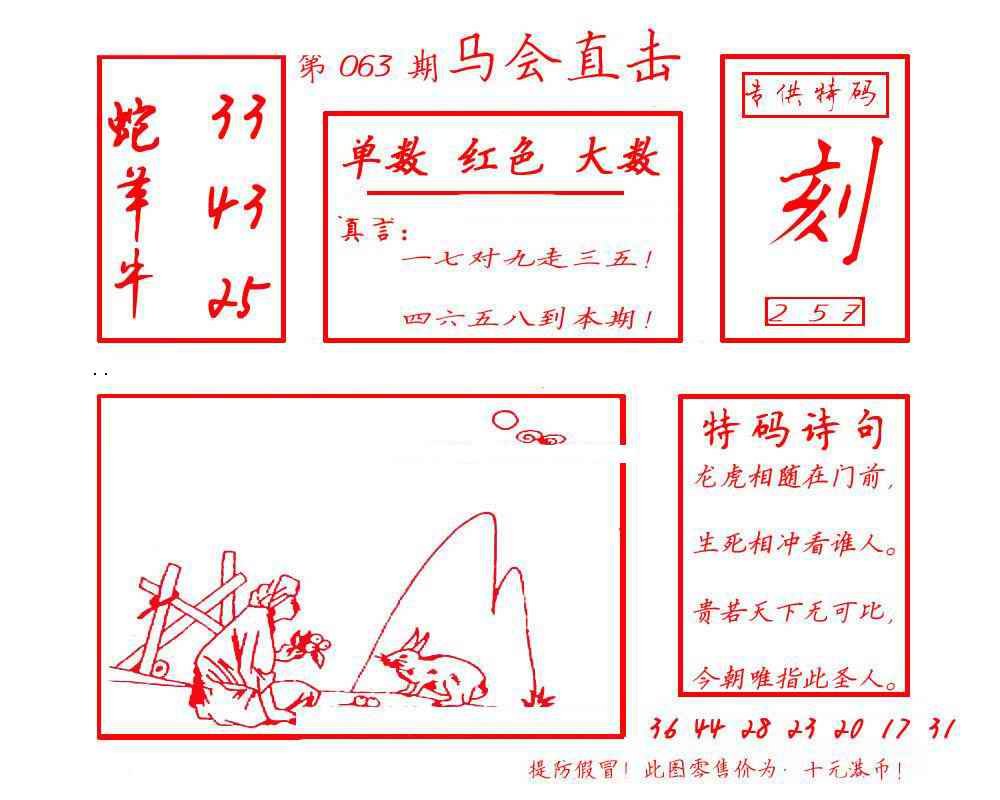 第 063 期 马会直击
蛇 33
羊 43
牛 25
单数 红色 大数
真言：
一七对九走三五！
四六五八到本期！
专供特码
刻
2 5 7
特码诗句
龙虎相随在门前，
生死相冲看谁人。
贵若天下无可比，
今朝唯指此圣人。
36 44 28 23 20 17 31
提防假冒！此图零售价为·十元港币！